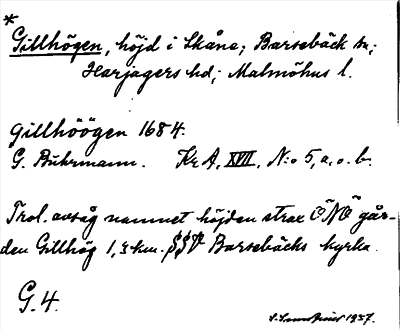 *
Gillhögen, höjd i Skåne; Barsebäck sn;
Harjagers hd; Malmöhus l.
Gillhöögen 1684.
G. Buhrmann. Kr A, XVII, N:o 5, a. o. b.
Trol. avsåg namnet höjden strax ÖNÖ går-
den Gillhög 1,3 km. SSV Barsebäcks kyrka.
G. 4.
1937.